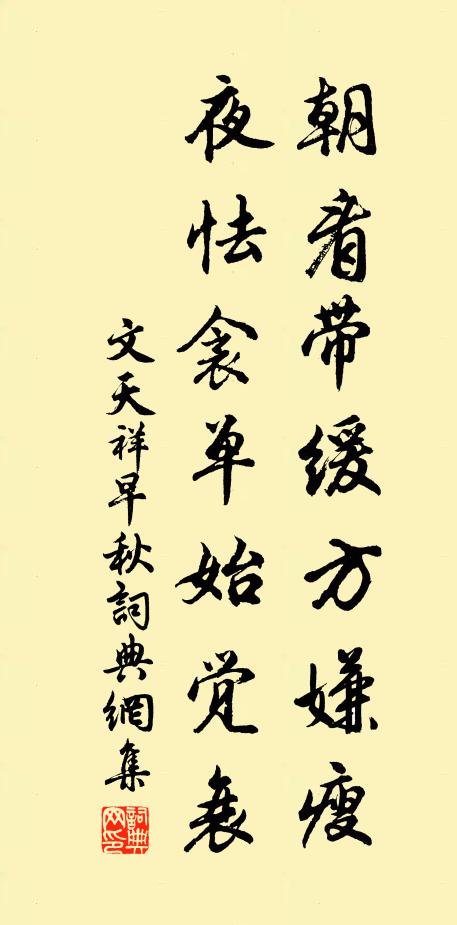 朝看带缓方嫌瘦
夜怯衾单始觉衰
文天祥早秋詞典網集
詞典网印